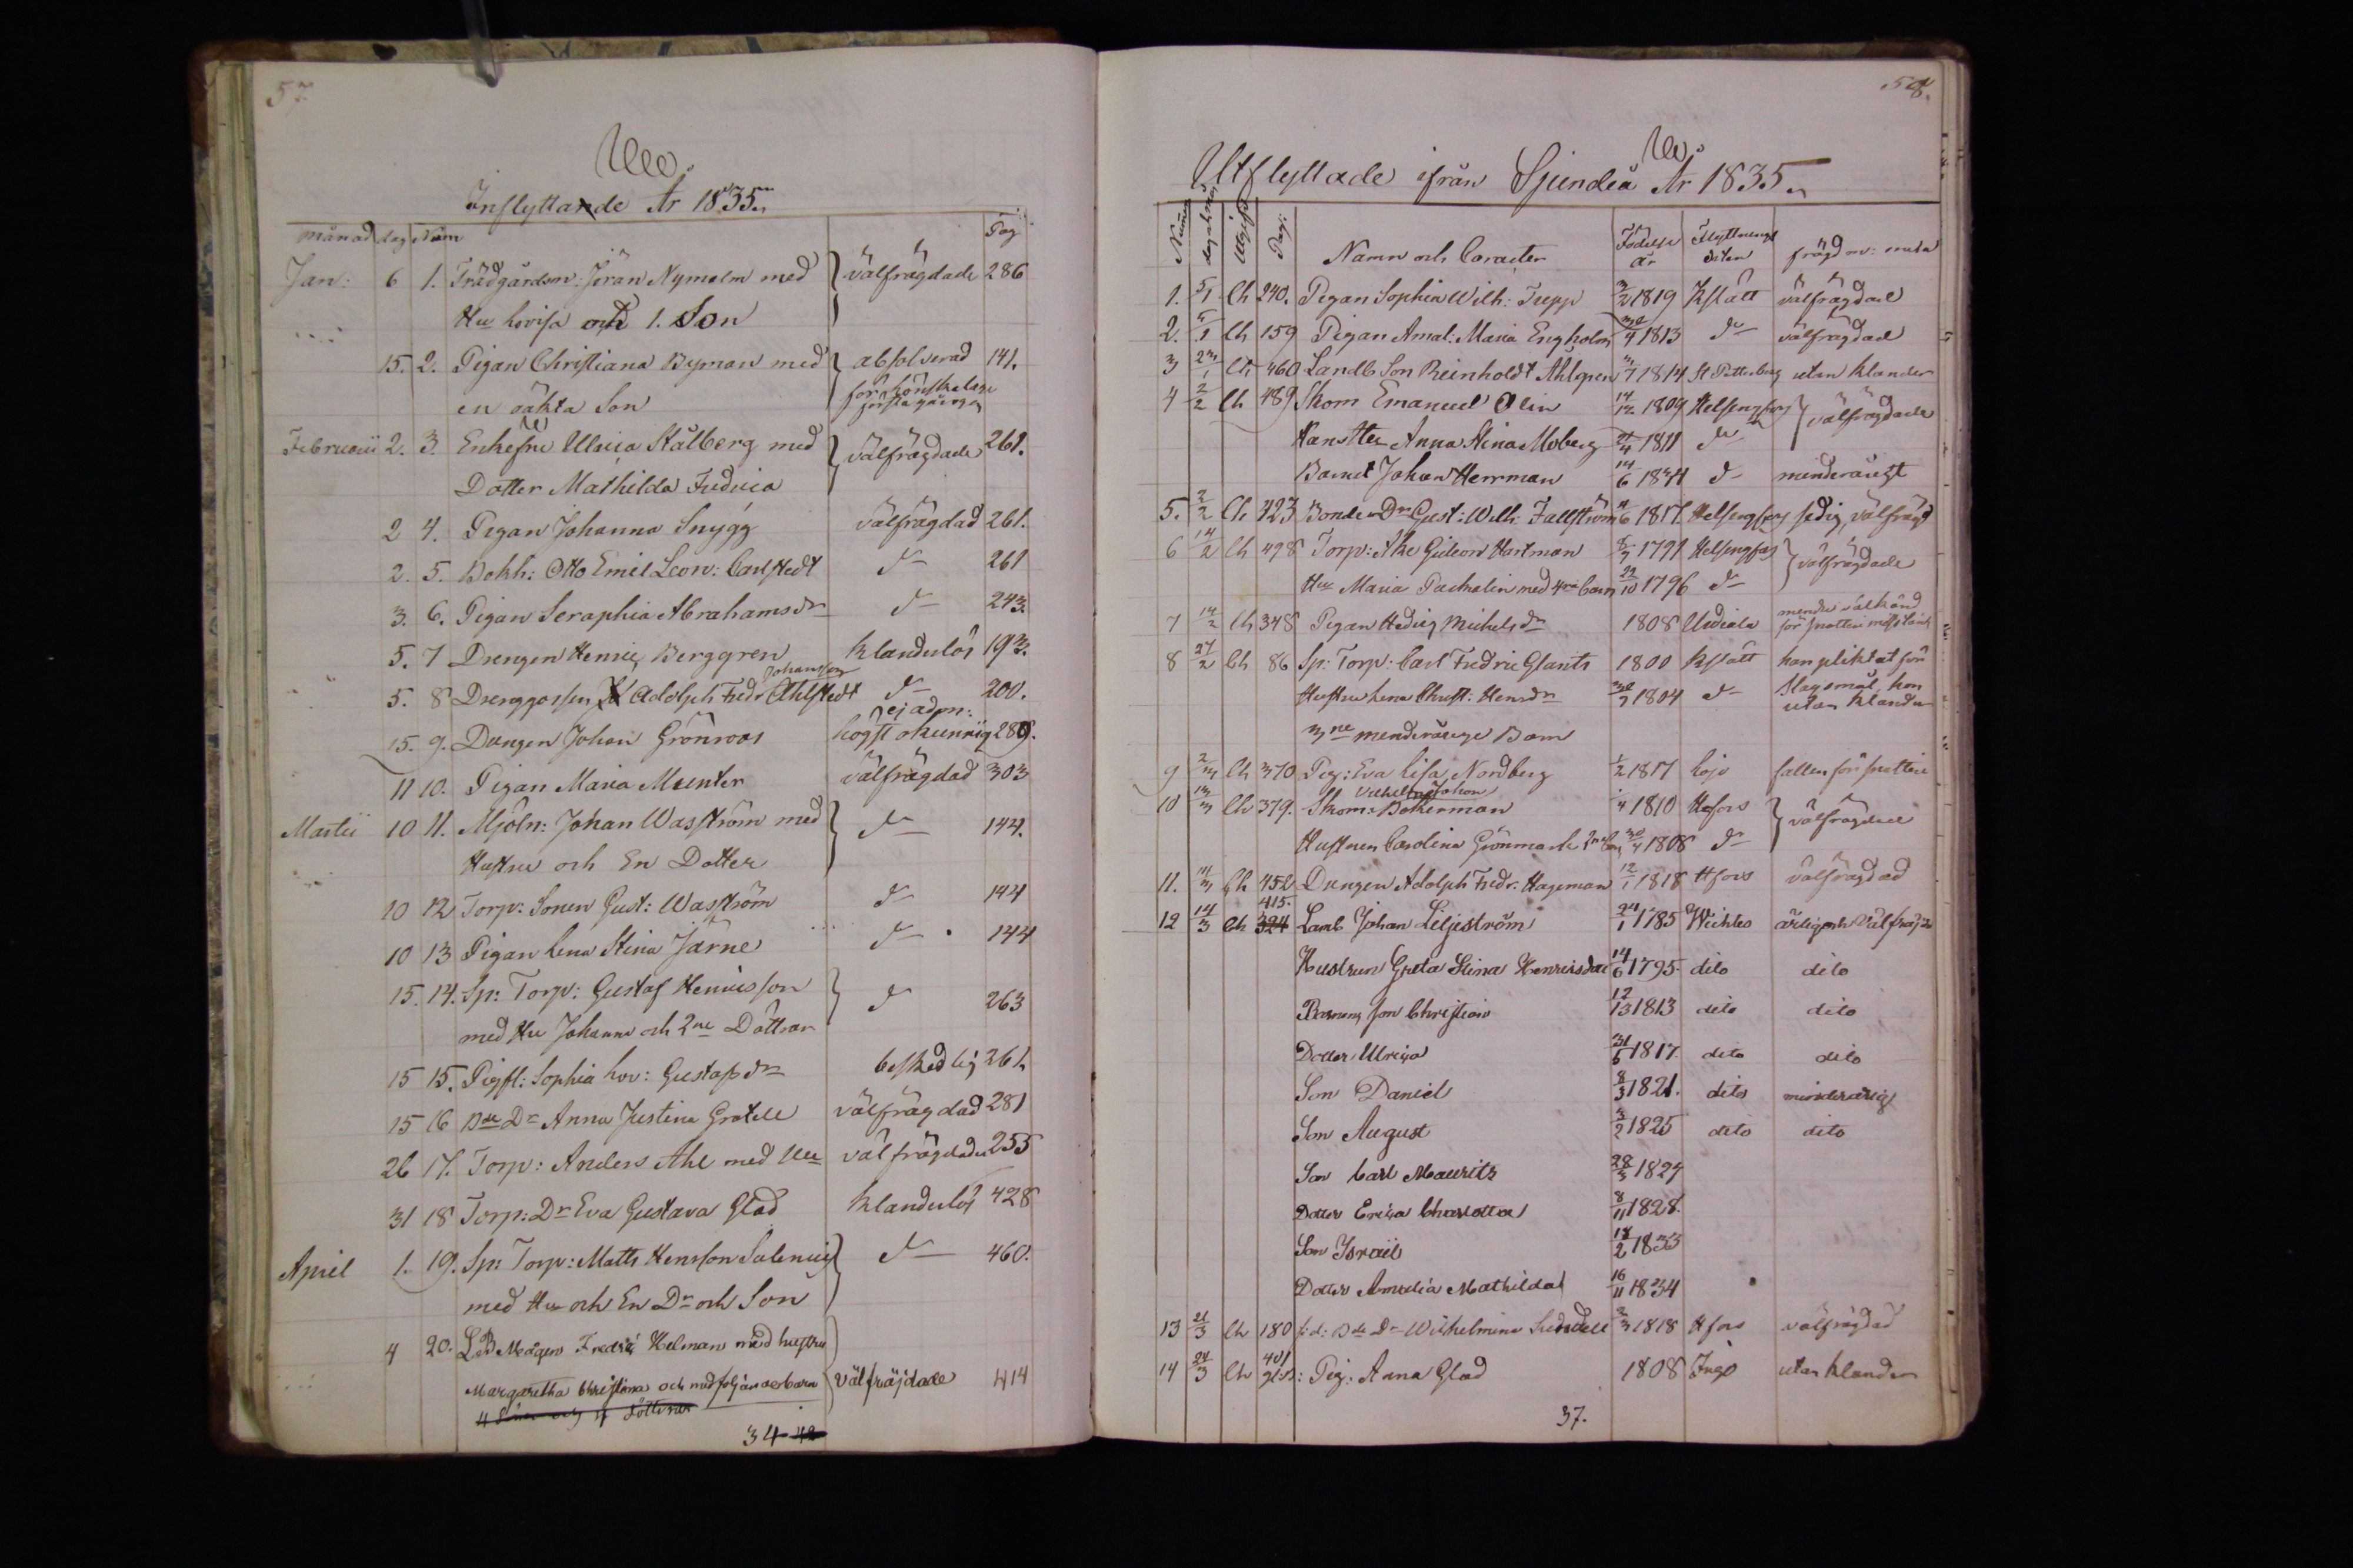 57.
Inflyttande År 1835.
månad dag Num Pag
Jan: 6 1. Trädgårdsm: Jöran Nymalm med välfrägdade 286
Hu Lovisa och 1. Son
15. 2. Pigan Christiana Byman med absolverad 141.
en oäkta Son för lönskaläge första gången
Februarii 2. 3. Enkefru Ulrica Stålberg med välfrägdade 261.
Dotter Mathilda Fredrica
2 4. Pigan Johanna Snygg välfrägdad 261.
2. 5. Bokh: Otto Emil Leon: Carlstedt d:o 261
3. 6. Pigan Seraphia Abrahamsdr d:o 243.
5. 7 Drengen Henric Berggren klanderlös 193.
Johansson
5. 8 Drenggossen Adolph Fredr Ahlstedt d:o 200.
ej adm:
15. 9. Drengen Johan Grönroos högst okunnig 289.
11 10. Pigan Maria Munter välfrägdad 303
Martii 10 11. Mjöln: Johan Wasström med d:o 144.
Hustru och En Dotter
10 12 Torp: Sonen Gust: Wasström d:o 144
10 13 Pigan Lena Stina Järne d:o 144
15. 14. Sp: Torp: Gustaf Henricsson d:o 263
med Hu Johanna och 2ne Döttrar
15 15. Pigfl: Sophia Lov: Gustafsdr beskedlig 261
15 16 Bde Dr Anna Justina Grotell välfrägdad 281
26 17. Torp: Anders Ahl med Hu välfrägdade 255
31 18 Torp: Dr Eva Gustava Glad klanderlös 428
April 1. 19. Sp: Torp: Matts Hensson Salenius d:o 460.
med Hu och En Dr och Son
4 20. LB Mågen Fredric Helman med hustru
Margaretha Christina och medföljande barn välfräjdade 414
4 Söner och 4 döttrar
34 42
58.
Utflyttade ifrån Sjundeå År 1835.
Numer dag och månad Pag: Namn och Caracter Födelse år Flyttnings orten frägd m: meta
1. 5/1 Ch 240. Pigan Sophia Wilh: Trepp 3/2 1819 Kslätt välfrägdad
2. 5/1 Ch 159 Pigan Amal: Maria Engholm 30/4 1813 d:o välfrägdad
3 23/1 Ch 460 Landb Son Reinholdt Ahlgren 1814 St Pettersburg utan klander
4 2/2 Ch 489 Skom Emanuel Olin 14/12 1809 Helsingfors välfrägdade
Hans Hu Anna Stina Moberg 21/4 1811 d:o
Barnet Johan Herrman 14/6 1834 d:o minderårigt
5. 2/2 Ch 423 Bonde Dr Gust: Wilh: Fallström 6 1817. Helsingfors sedig, välfrägd
6 14/2 Ch 498 Torp: Åke Gideon Hartman 8/7 1791 Helsingfors välfrägdade
Hu Maria Pachalin med 4ra barn 22/10 1796 d:o
7 14/2 Ch 348 Pigan Hedvig Michelsdr 1808 Urdiala mindre välkänd
8 27/2 Ch 86 Sp: Torp: Carl Fredric Glants 1800 Kslätt han pliktat för
Hustru Lena Christ: Hensdr 30/7 1804 d:o slagsmål, hon utan klander
3ne minderårige Barn
9 2/3 Ch 370 Pig: Eva Lisa Nordberg 1/2 1817 Lojo fallen för snatteri
Vilhelm Johan
10 13/3 Ch 379. Skom: Bökerman 4 1810 Hfors välfrägdad
Hustrun Carolina Grönmark 2ne barn 30/4 1808 d:o
11. 14/3 Ch 452 Drengen Adolph Fredr. Hageman 12/1 1818 Hfors välfrägdad
415.
12 14/3 Ch 324 Lamb Johan Liljeström 24/1 1785 Wichtis ärlig och välfrägd
Hustrun Greta Stina Henricsdr 14/6 1795. dito dito
Barnen, son Christian 12/13 1813 dito dito
Dotter Ulrica 31/5 1817. dito dito
Son Daniel 8/3 1821. dito minderårig
Son August 3/2 1825 dito dito
Son Carl Mauritz 28/3 1827
Dotter Erica Charlotta 8/11 1828.
Son Israël 18/2 1833
Dotter Amalia Mathilda 16/11 1834
13 21/3 Ch 180 f.d: Bde Dr Wilhelmina 2/3 1818 Hfors välfrägdad
401
14 24/3 Ch Pig: Anna Glad 1808 Ingo utan klander
37.